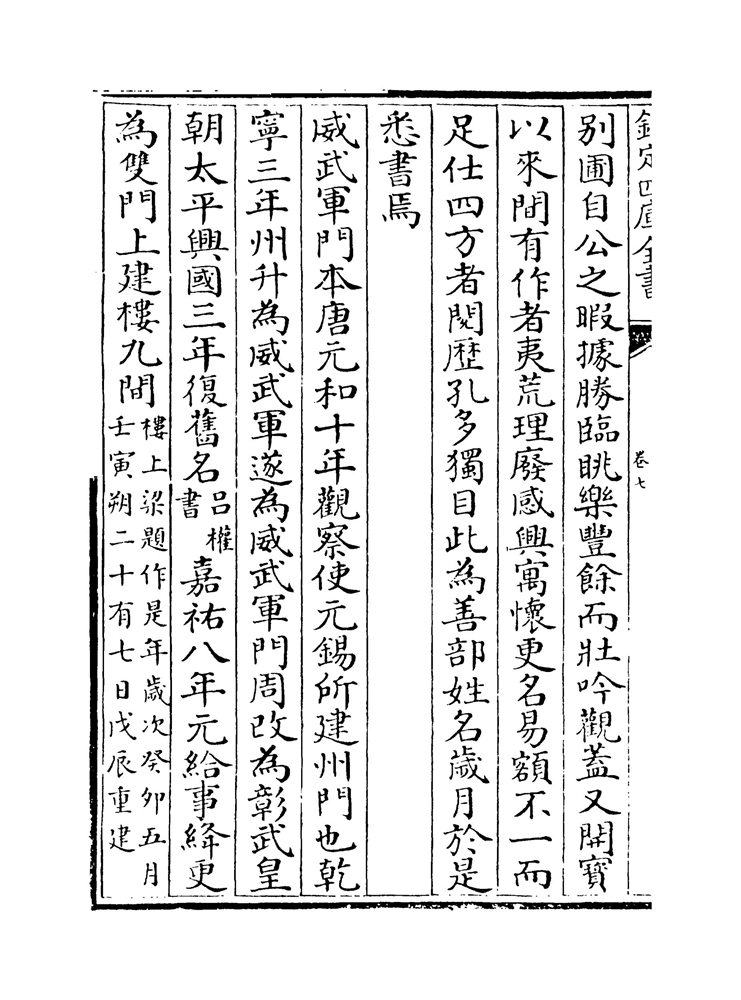 欽定四庫全書
卷七
別圃自公之暇據勝臨眺樂豐餘而壯吟觀蓋又開寶
以來間有作者夷荒理廢感興寓懷更名易額不一而
足仕四方者閱歷孔多獨目此為善部姓名歲月於是
悉書焉
威武軍門本唐元和十年觀察使元錫所建州門也乾
寧三年州升為威武軍遂為威武軍門周改為彰武皇
朝太平興國三年復舊名呂權書嘉祐八年元給事絳更
為雙門上建樓九間樓上梁題作是年歲次癸卯五月壬寅朔二十有七日戊辰重建